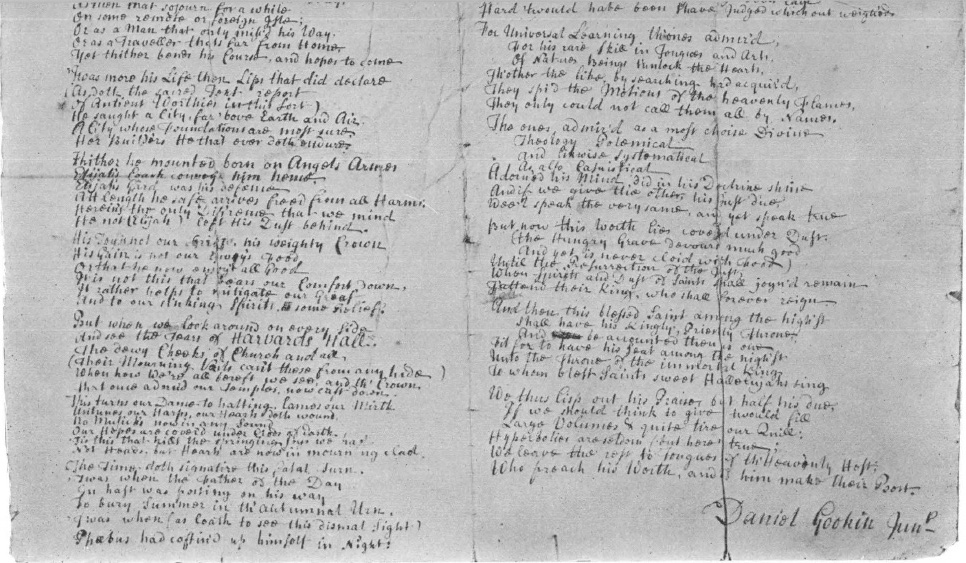 As men that sojourn for a while
On some remote or foreign Isle;
Or as a Man that only miss'd his Way.
Or as a Traveller that's far from Home
Yet thither bends his Course, and hopes to come
'Twas more his Life then Lips that did declare
(As doth the sacred Text report
Of Antient Worthies in this sort)
He sought a City, far 'bove Earth and Air.
A City whose Foundations are most sure
Her Builders He that ever doth endure
Thither he mounted born on Angels Armes
Elijahs Coach convoy him hence.
Elijahs Gird was his defence
At length he safe arrives freed from all Harms.
Herein's the only Difference that we mind
He not Elijah) left His Dust behind.
His Joy's not our Grief, his weighty Crown
His Gain is not our Good
Or that he now enjoy't all Good
It is not this that bears our Comfort down.
It rather helps to mitigate our Greif
And to our sinking Spirits, is some relief.
But when we look around on every side
And see the Tears of Harvards Hall.
The dewy Cheeks of Church and all
(Their Mourning Vails can't these from any hide)
When now We're all bereft we see, and th' Crown
That once adorn'd our Temples, now cast down.
This turns our Dame to halting, lames our Mirth
Untunes our Harps, our Hearts doth wound.
No Musick's now in any Sound
Our Hopes are cover'd under Clods of Earth.
Tis this that kills the springing Joys we had
Not Heads, but Hearts are now in mourning clad.
The Time doth signalize this fatal Turn.
'Twas when the Father of the Day
In hast was posting on his way
To bury Summer in th' Autumnal Urn.
'Twas when (as loath to see this dismal Sight)
Phœbus had coffin'd up himself in Night:
Hard 'twould have been t' have judged which out weigh'd
For Universal Learning, th' one's admir'd,
For his rare Skill in Tongues and Arts,
Of Natures Beings t' unlock the Hearts,
Th' other the like, by searching had acquir'd,
They spi'd the Motions of the heavenly Flames,
They only could not call them all by Names.
The ones, admir'd as a most choise Divine
Theology Polemical
And likwise Systematical
As also Casuistical
Adorned his Mind, did in his Doctrine shine
And if we give the other, his just due
Wee'l speak the very same, and yet speak true
But now this Worth lies cover'd under Dust.
(The Hungry Grave devours much good
And yet is never cloid with food)
Until the Resurrection of the Just,
When Spirits and Dust of Saints shall joyn'd remain
T'attend their King, who shall forever reign
And then this blessed Saint among the high'st
Shall have his Kingly, Priestly Throne,
And be accounted then as one
Fit for to have his Seat among the nigh'st
Unto the Throne of the immortal King
To whom blest Saints sweet Hallelujahs sing
We thus lisp out his Praises but half his due.
If we should think to give 't would fill
Large Volumes & quite tire our Quill.
Hyperbolies are seldom (but here) true
We leave the rest to Tongues of th' Heavenly Host.
Who preach his Worth, and of him make their Boast.
Daniel Gookin Junr